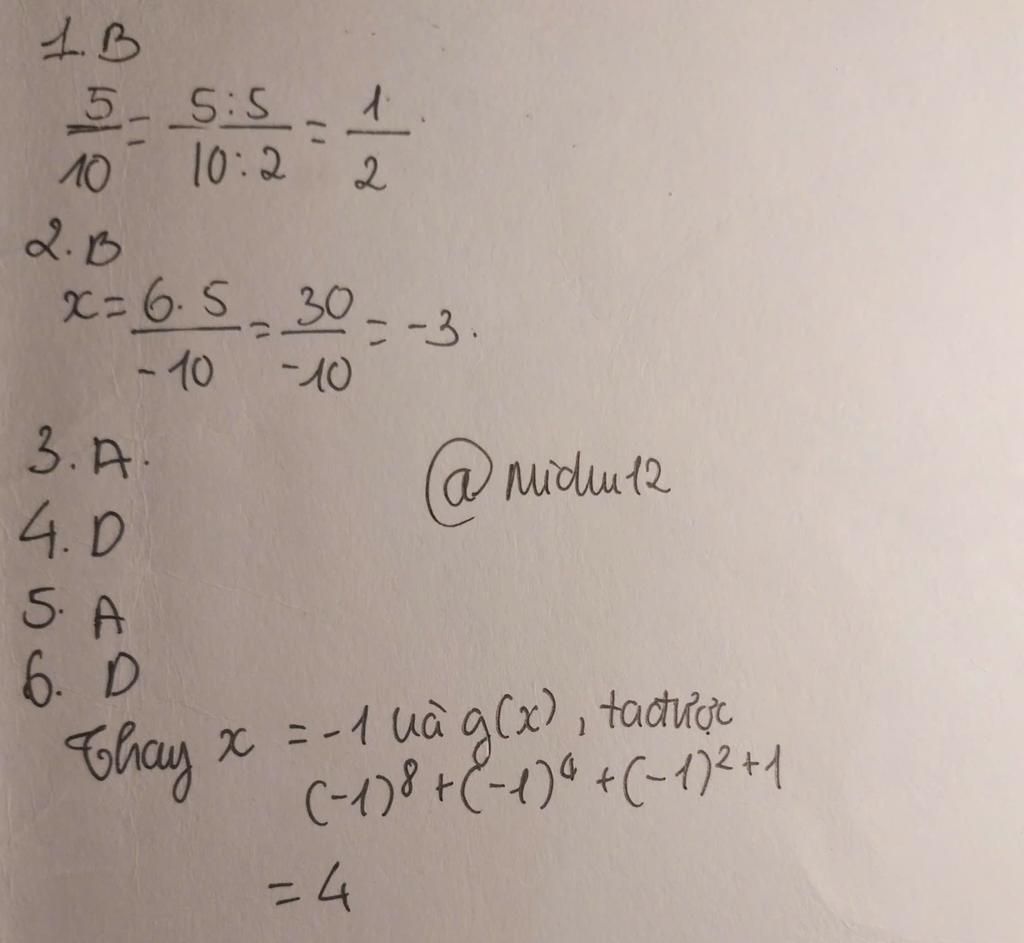 1. B
5/10 = 5:5/10:2 = 1/2.
2. B
x = 6.5/-10 = 30/-10 = -3.
3. A.
@midm12
4. D
5. A
6. D
Thay x = -1 và g(x), ta được
(-1)⁸ + (-1)⁴ + (-1)² + 1
= 4